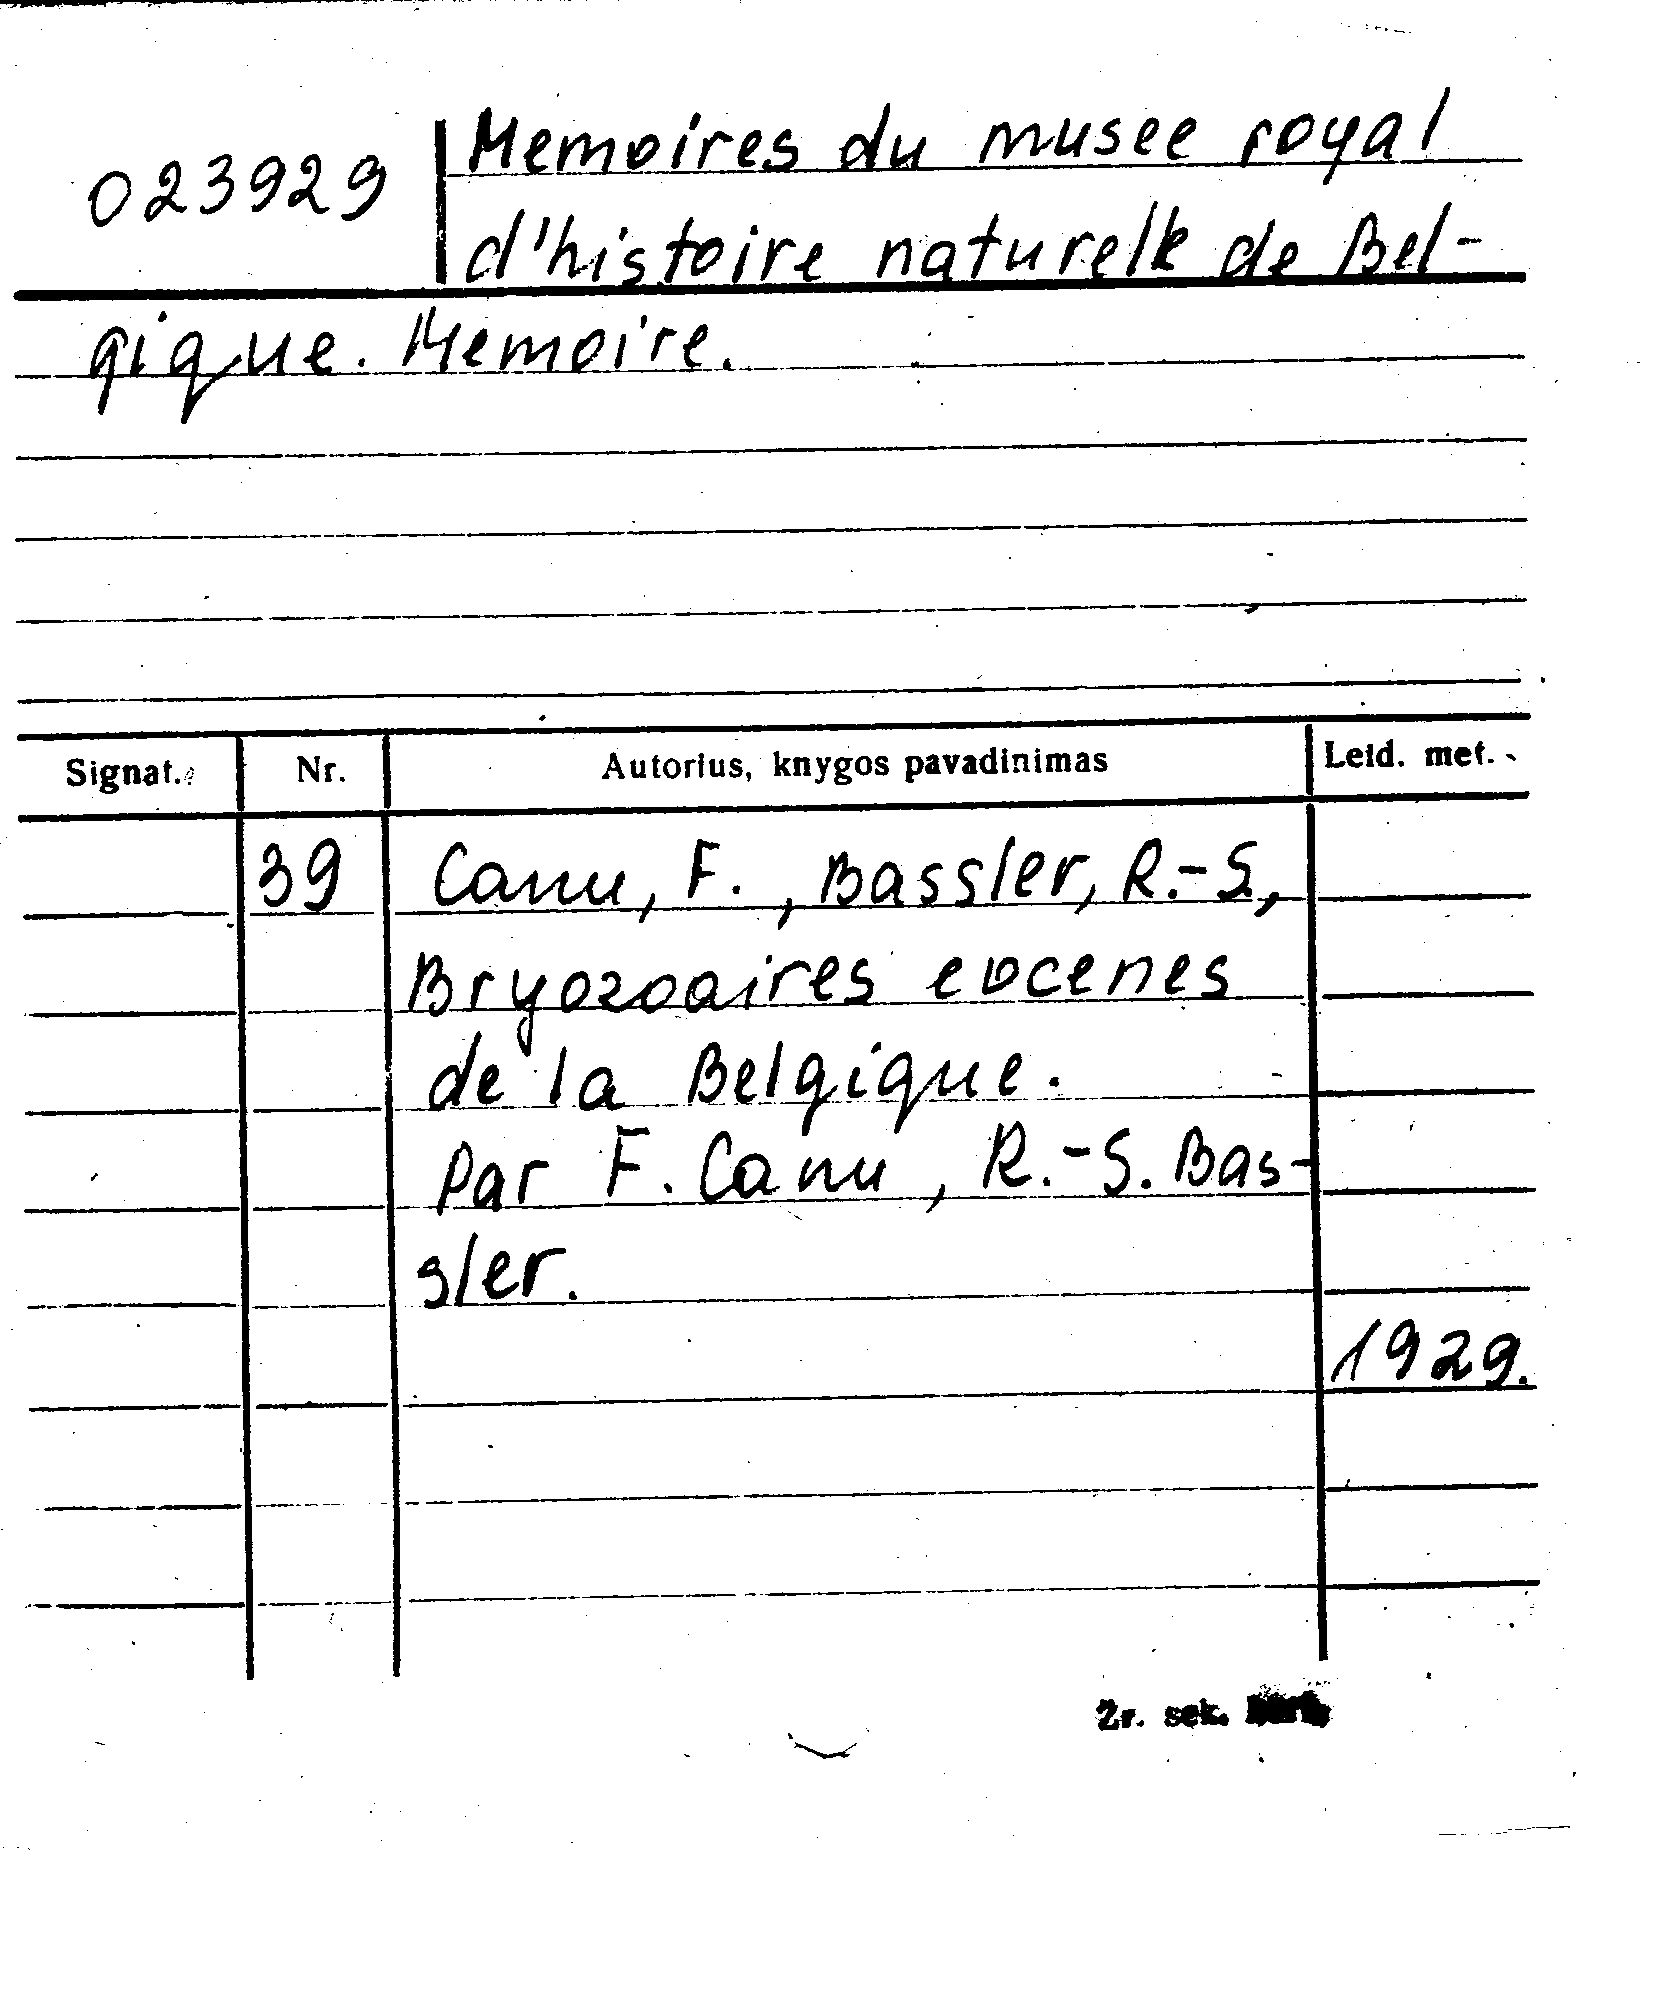 023929
Memoires du musee royal
d'histoire naturelle de Bel-
gique. Memoire.
Signat. Nr. Autorius, knygos pavadinimas Leid. met.
39 Canu, F., Bassler, R.-S.,
Bryozoaires eocenes
de la Belgique.
Par F. Canu, R.-S. Bas-
sler.
1929.
Žr. sek.